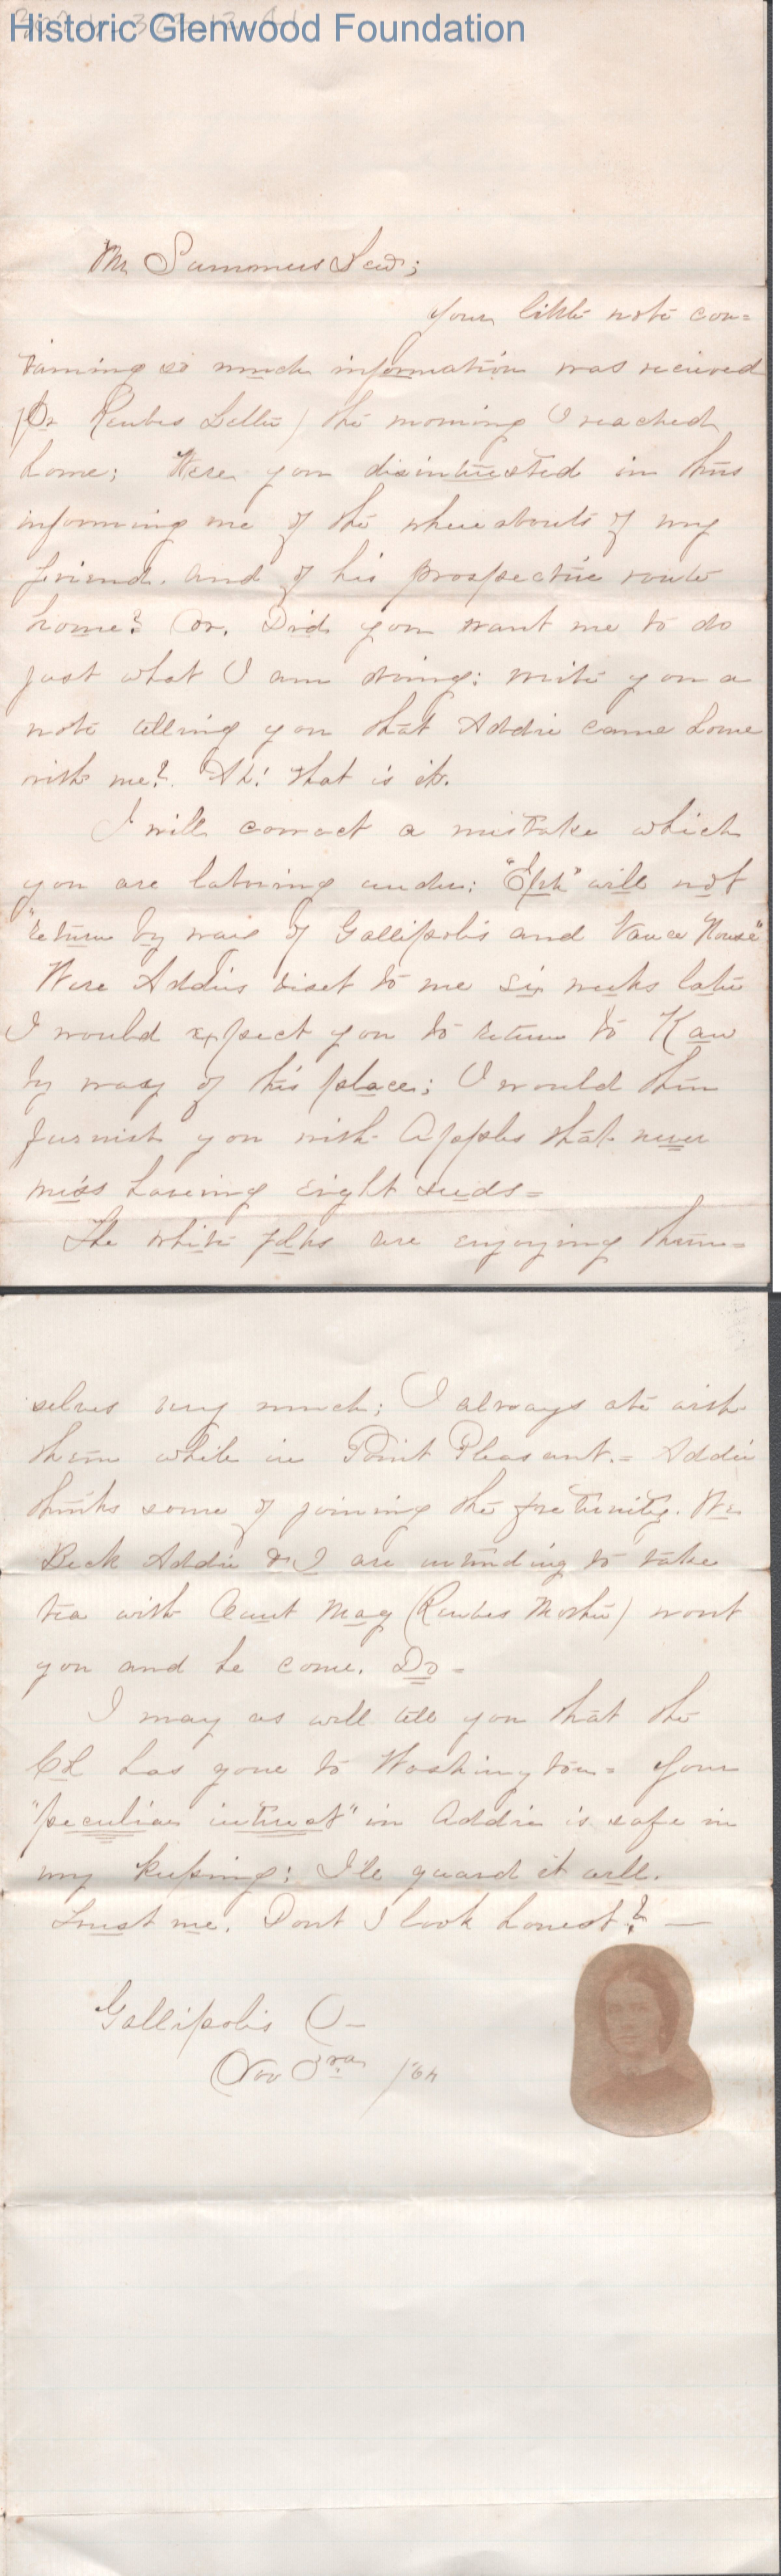 Historic Glenwood Foundation
Mr Summers Sed;
Your little note con=
taining so much information was recieved
(Pr Reubes Letter) the morning I reached
home; Were you disinterested in thus
informing me of the whereabouts of my
friend. and of his prospective route
home? Or. Did you want me to do
just what I am doing: write you a
note telling you that Addie came home
with me? Ah! that is it.
I will correct a mistake which
you are laboring under: "Eph" will not
"return by way of Gallipolis and Vance House"
Were Addies viset to me six weeks later
I would expect you to return to Kaw
by way of this place; I would then
furnish you with Apples that never
miss haveing eight seeds=
The white folks are enjoying them=
selves very much; I always ate with
them while in Point Pleasant.= Addie
thinks some of joining the fraternity. We
Beck Addie & I are intending to take
tea with Aunt Mag (Reubes Mother) wont
you and he come. Do=
I may as well tell you that the
Col has gone to Washington= Your
"peculiar interest" in Addie is safe in
my keeping: I'le guard it well.
trust me. Dont I look honest? —
Gallipolis O—
Nov 3rd /64